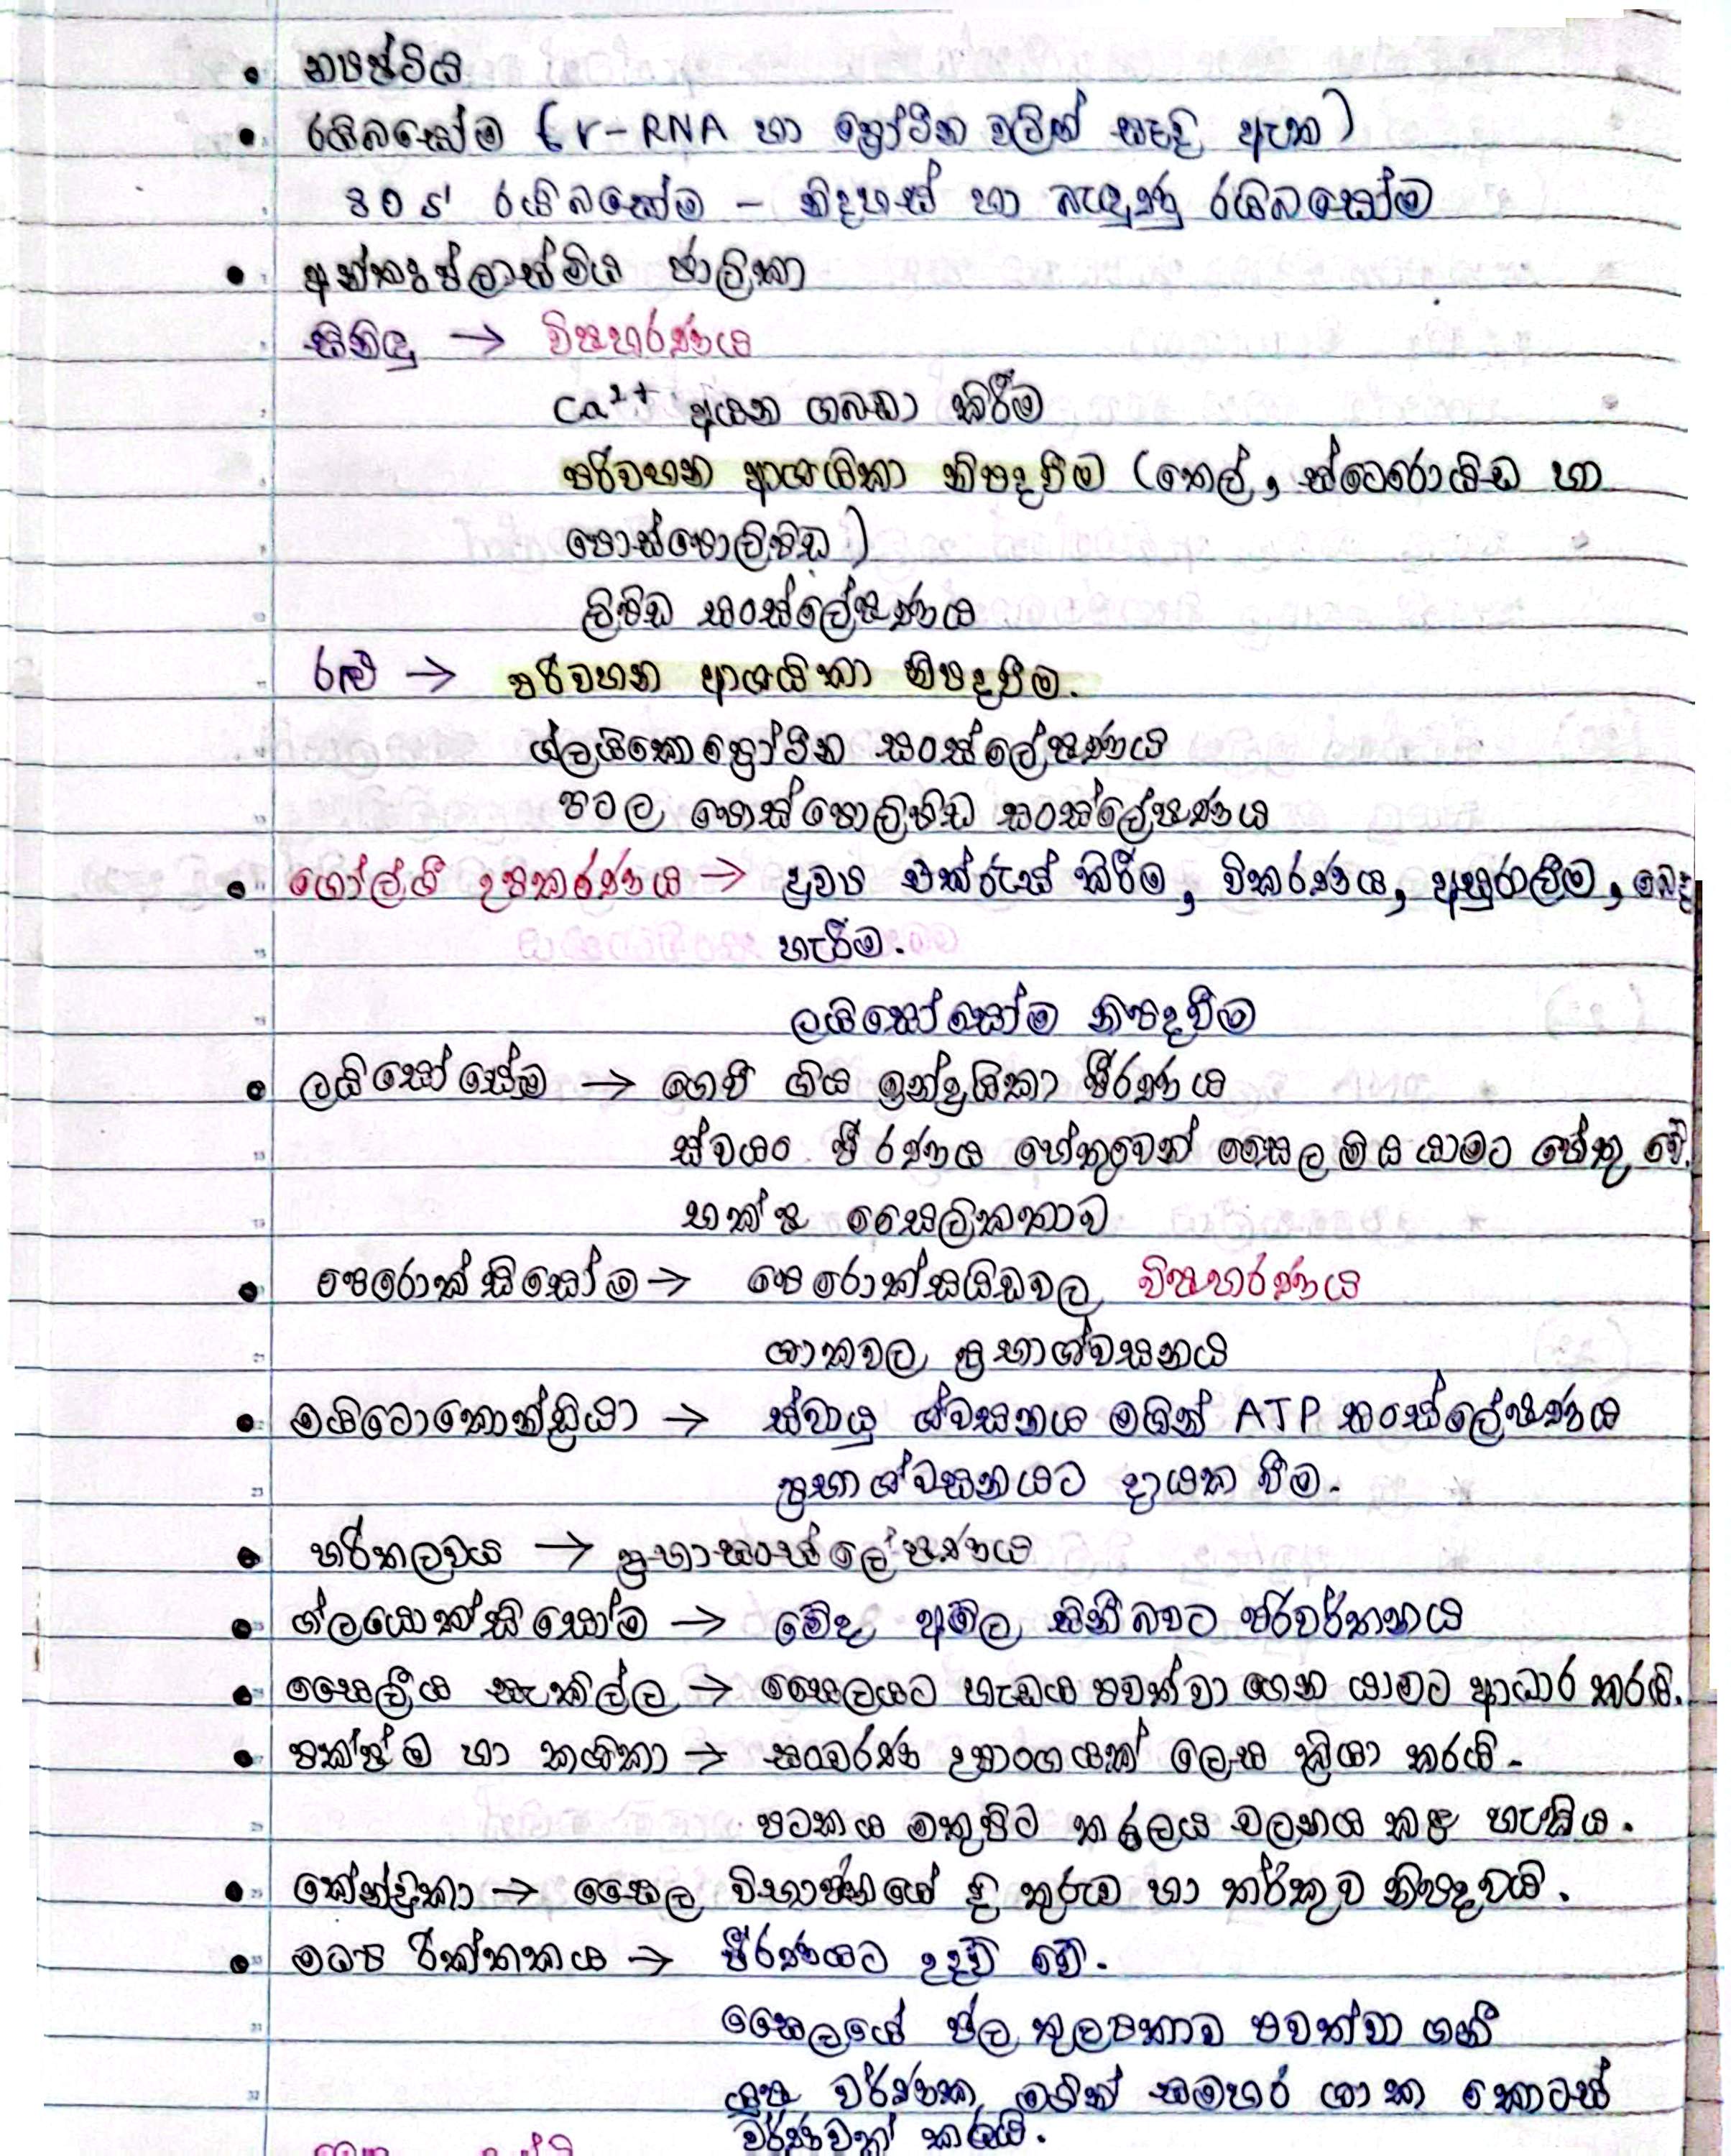 • න්‍යෂ්ටිය
• රයිබසෝම (r-RNA හා ප්‍රෝටීන වලින් සෑදි ඇත)
80 S රයිබසෝම - නිදහස් හා බැඳුණු රයිබසෝම
• අන්තඃප්ලාස්මීය ජාලිකා
සිනිඳු → විෂහරණය
Ca²⁺ අයන ගබඩා කිරීම
පරිවහන ආශයිකා නිපදවීම (තෙල්, ස්ටෙරොයිඩ හා
පොස්පොලිපිඩ)
ලිපිඩ සංස්ලේෂණය
රළු → පරිවහන ආශයිකා නිපදවීම.
ග්ලයිකොප්‍රෝටීන සංස්ලේෂණය
පටල පොස්පොලිපිඩ සංස්ලේෂණය
• ගොල්ගි උපකරණය → ද්‍රව්‍ය එක්රැස් කිරීම, විකරණය, ඇසුරාලීම, බෙදා
හැරීම.
ලයිසෝසෝම නිපදවීම
• ලයිසෝසෝම → ගෙවී ගිය ඉන්ද්‍රයිකා ජීරණය
ස්වයං ජීරණය හේතුවෙන් සෛල මිය යාමට හේතු වේ.
භක්ෂ සෛලිකතාව
• පෙරොක්සිසෝම → පෙරොක්සයිඩවල විෂහරණය
ශාකවල ප්‍රභාශ්වසනය
• මයිටොකොන්ඩ්‍රියා → ස්වායු ශ්වසනය මගින් ATP සංස්ලේෂණය
ප්‍රභාශ්වසනයට දායක වීම.
• හරිතලවය → ප්‍රභාසංස්ලේෂණය
• ග්ලයොක්සිසෝම → මේද අම්ල සීනි බවට පරිවර්තනය
• සෛලීය සැකිල්ල → සෛලයට හැඩය පවත්වා ගෙන යාමට ආධාර කරයි.
• පක්ෂ්ම හා කශිකා → සංචරණ උපාංගයක් ලෙස ක්‍රියා කරයි.
පටකය මතුපිට තරලය චලනය කළ හැකිය.
• කේන්ද්‍රිකා → සෛල විභාජනයේ දී තුරුව හා තර්කුව නිපදවයි.
• මධ්‍ය රික්තකය → ජීරණයට උදව් වේ.
සෛලයේ ජල තුල්‍යතාව පවත්වා ගනී
යුෂ වර්ණක මගින් සමහර ශාක කොටස්
වර්ණවත් කරයි.